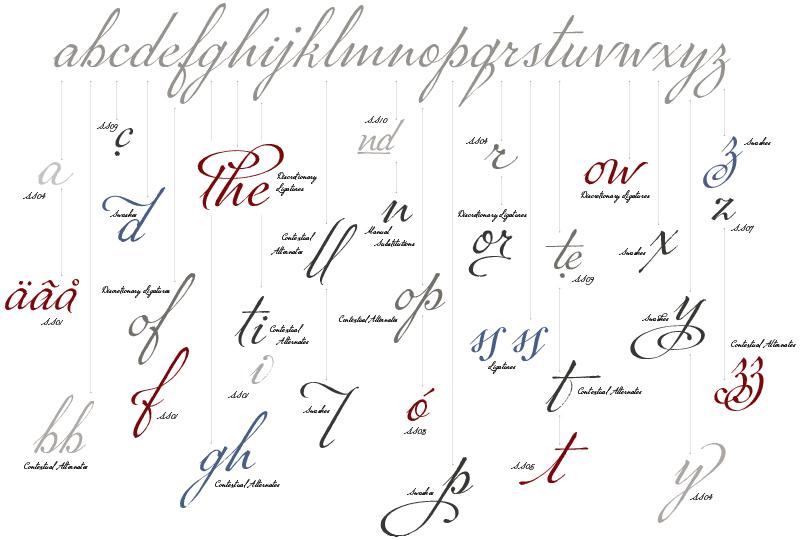 abcdefghijklmnopqrstuvwxyz
SS09
ç
SS10
nd
SS04
r
z
Swashes
a
SS04
the
Discretionary
Ligatures
ow
Discretionary Ligatures
Swashes
d
n
Manual
Substitutions
Discretionary Ligatures
or
z
SS07
Contextual
Alternates
ll
te
SS09
Swashes
x
äãå
SS01
Discretionary Ligatures
of
ti
Contextual
Alternates
op
Contextual Alternates
Swashes
y
ss ss
Ligatures
Contextual Alternates
zz
f
SS01
i
SS01
Swashes
l
ó
SS03
t
Contextual Alternates
bb
Contextual Alternates
gh
Contextual Alternates
Swashes
p
SS05
t
y
SS04